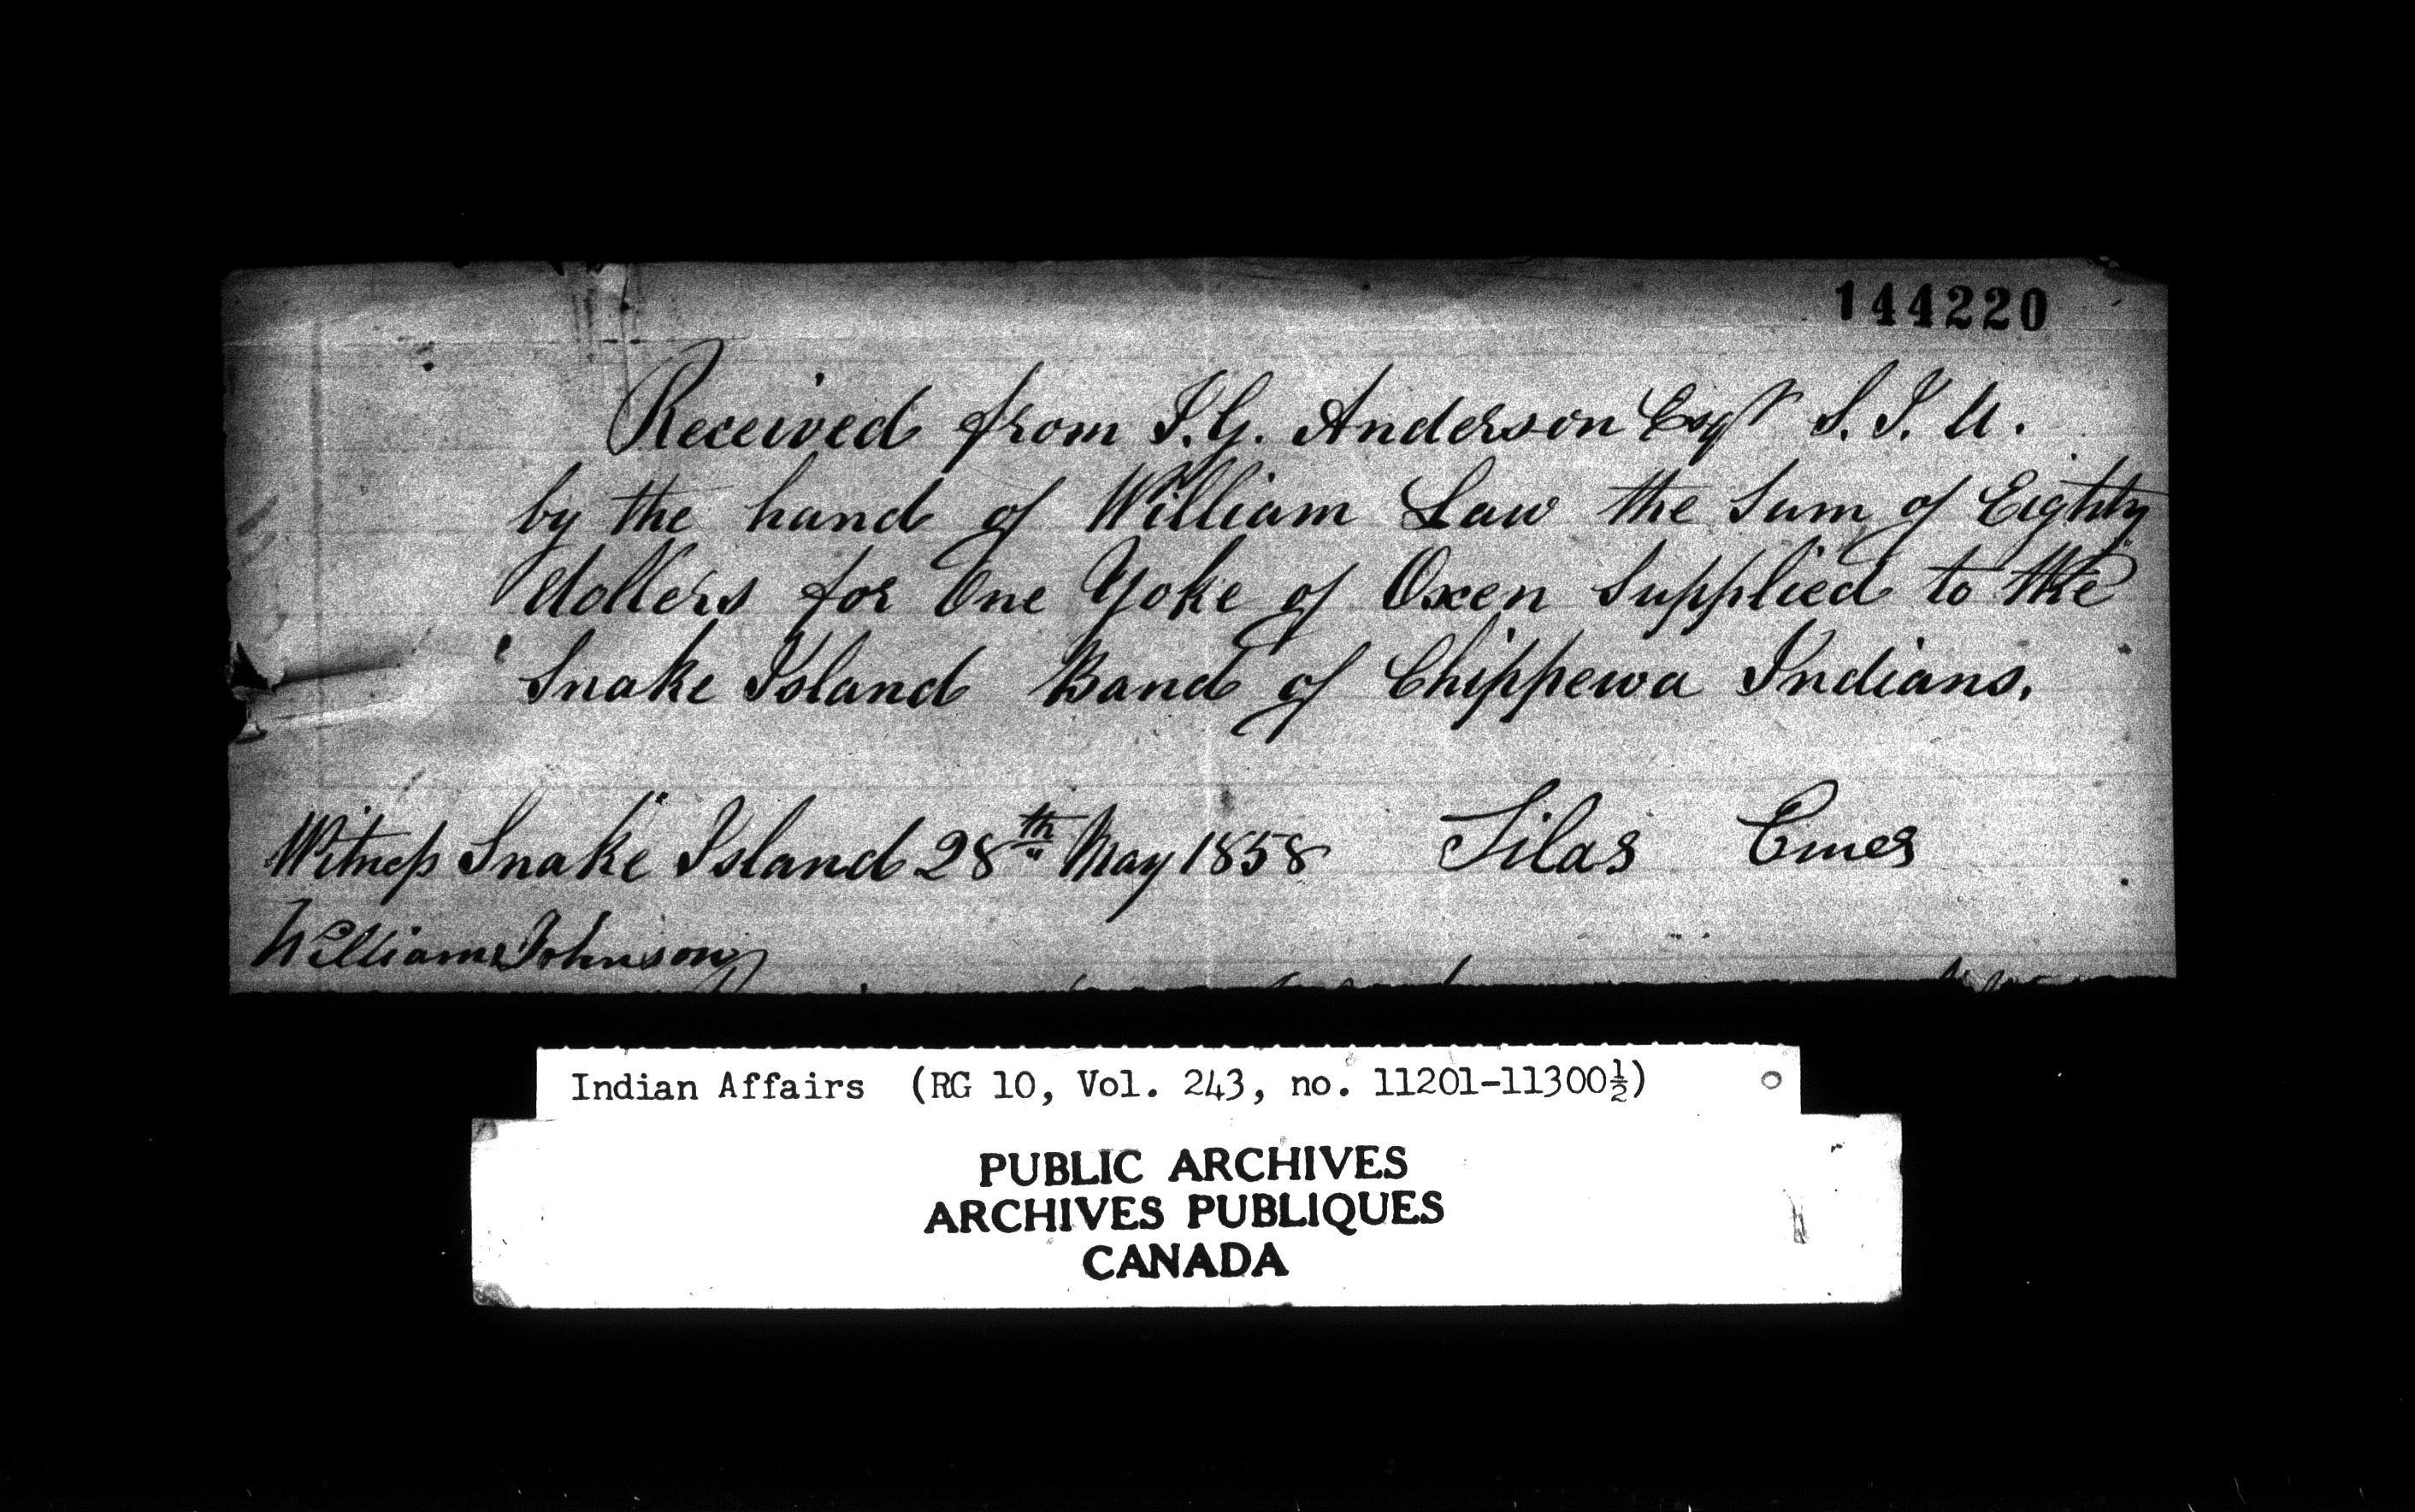 144220
Received from T.G. Anderson Esqr S.I.A.
by the hand of William Law the Sum of Eighty
dollers for One Yoke of Oxen Supplied to the
Snake Island Band of Chippewa Indians.
Witness Snake Island 28th May 1858 Silas Emes
William Johnson
Indian Affairs (RG 10, Vol. 243, no. 11201-11300½)
PUBLIC ARCHIVES
ARCHIVES PUBLIQUES
CANADA